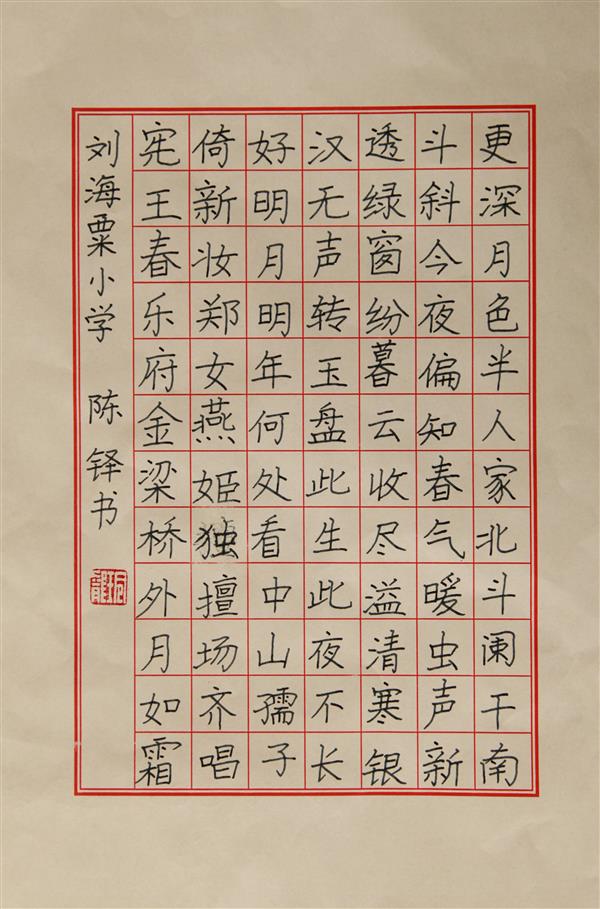 更深月色半人家北斗阑干南
斗斜今夜偏知春气暖虫声新
透绿窗纷暮云收尽溢清寒银
汉无声转玉盘此生此夜不长
好明月明年何处看中山孺子
倚新妆郑女燕姬独擅场齐唱
宪王春乐府金梁桥外月如霜
刘海粟小学 陈铎书